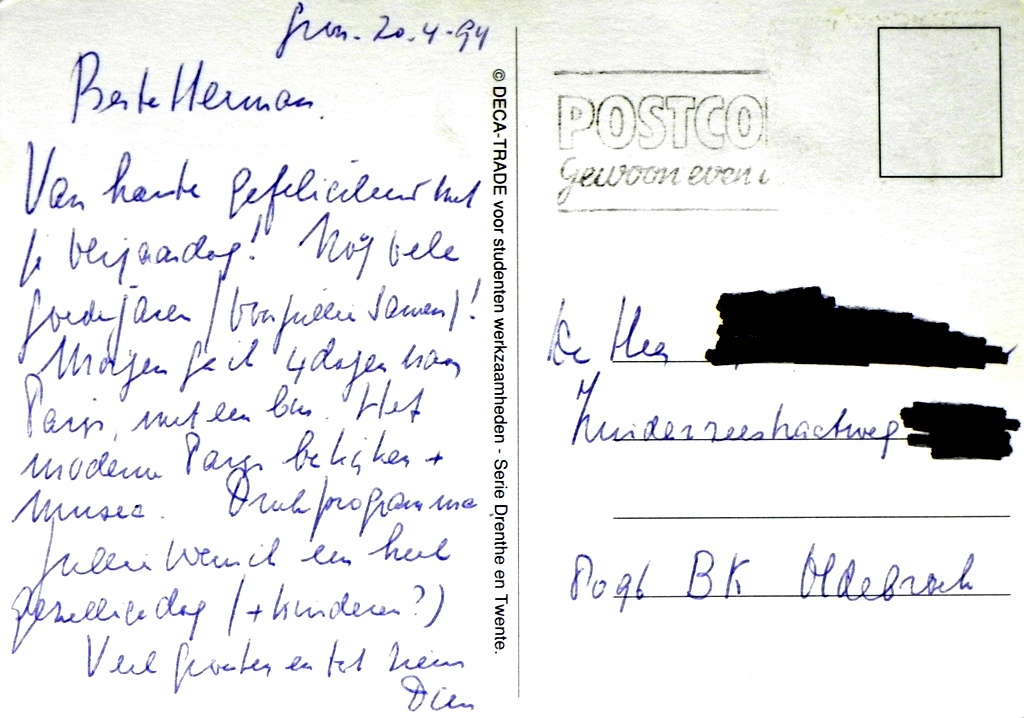 Gron. 20-4-94
Beste Herman,
Van harte gefeliciteerd met
je verjaardag! Nog vele
goede jaren (van jullie samen)!
Morgen ga ik 4 dagen naar
Parijs, met een bus. Het
moderne Parijs bekijken +
musea. Druk programma.
Jullie wens ik een heel
gezellige dag (+ kinderen?)
Veel groeten en tot ziens
Dien
© DECA-TRADE voor studenten werkzaamheden - Serie Drenthe en Twente.
POSTCO
Gewoon even
De Heer
Zuiderzeestraatweg
8096 BK Oldebroek